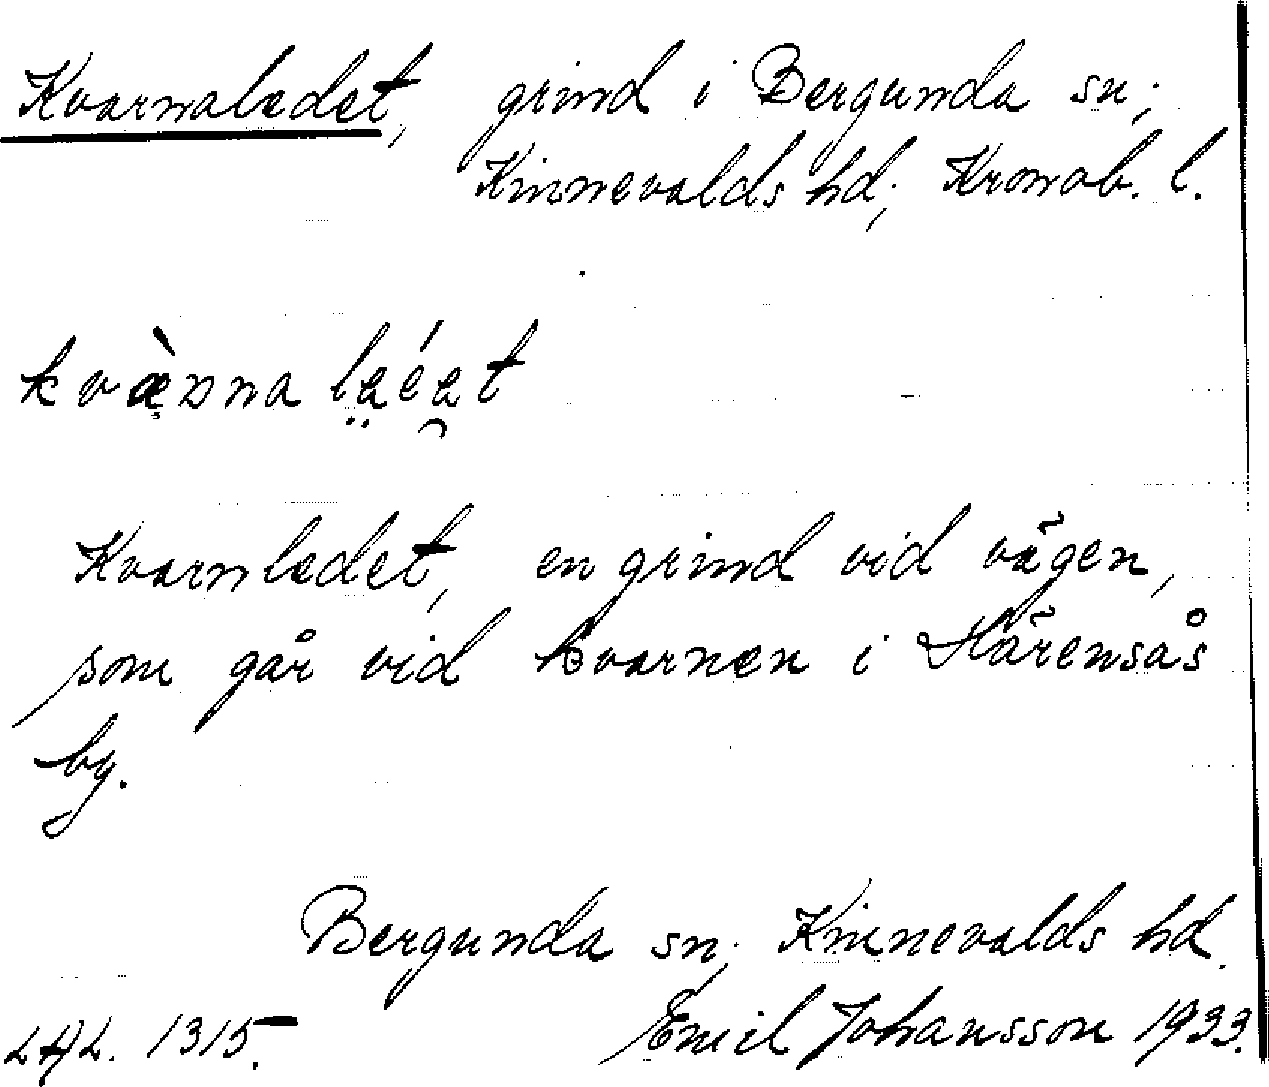 Kvarnaledet, grind i Bergunda sn;
Kinnevalds hd; Kronob. l.
kvæ̀nna
Kvarnledet, en grind vid vägen,
som går vid kvarnen i Härensås
by.
Bergunda sn; Kinnevalds hd.
LAL. 1315. Emil Johansson 1933.